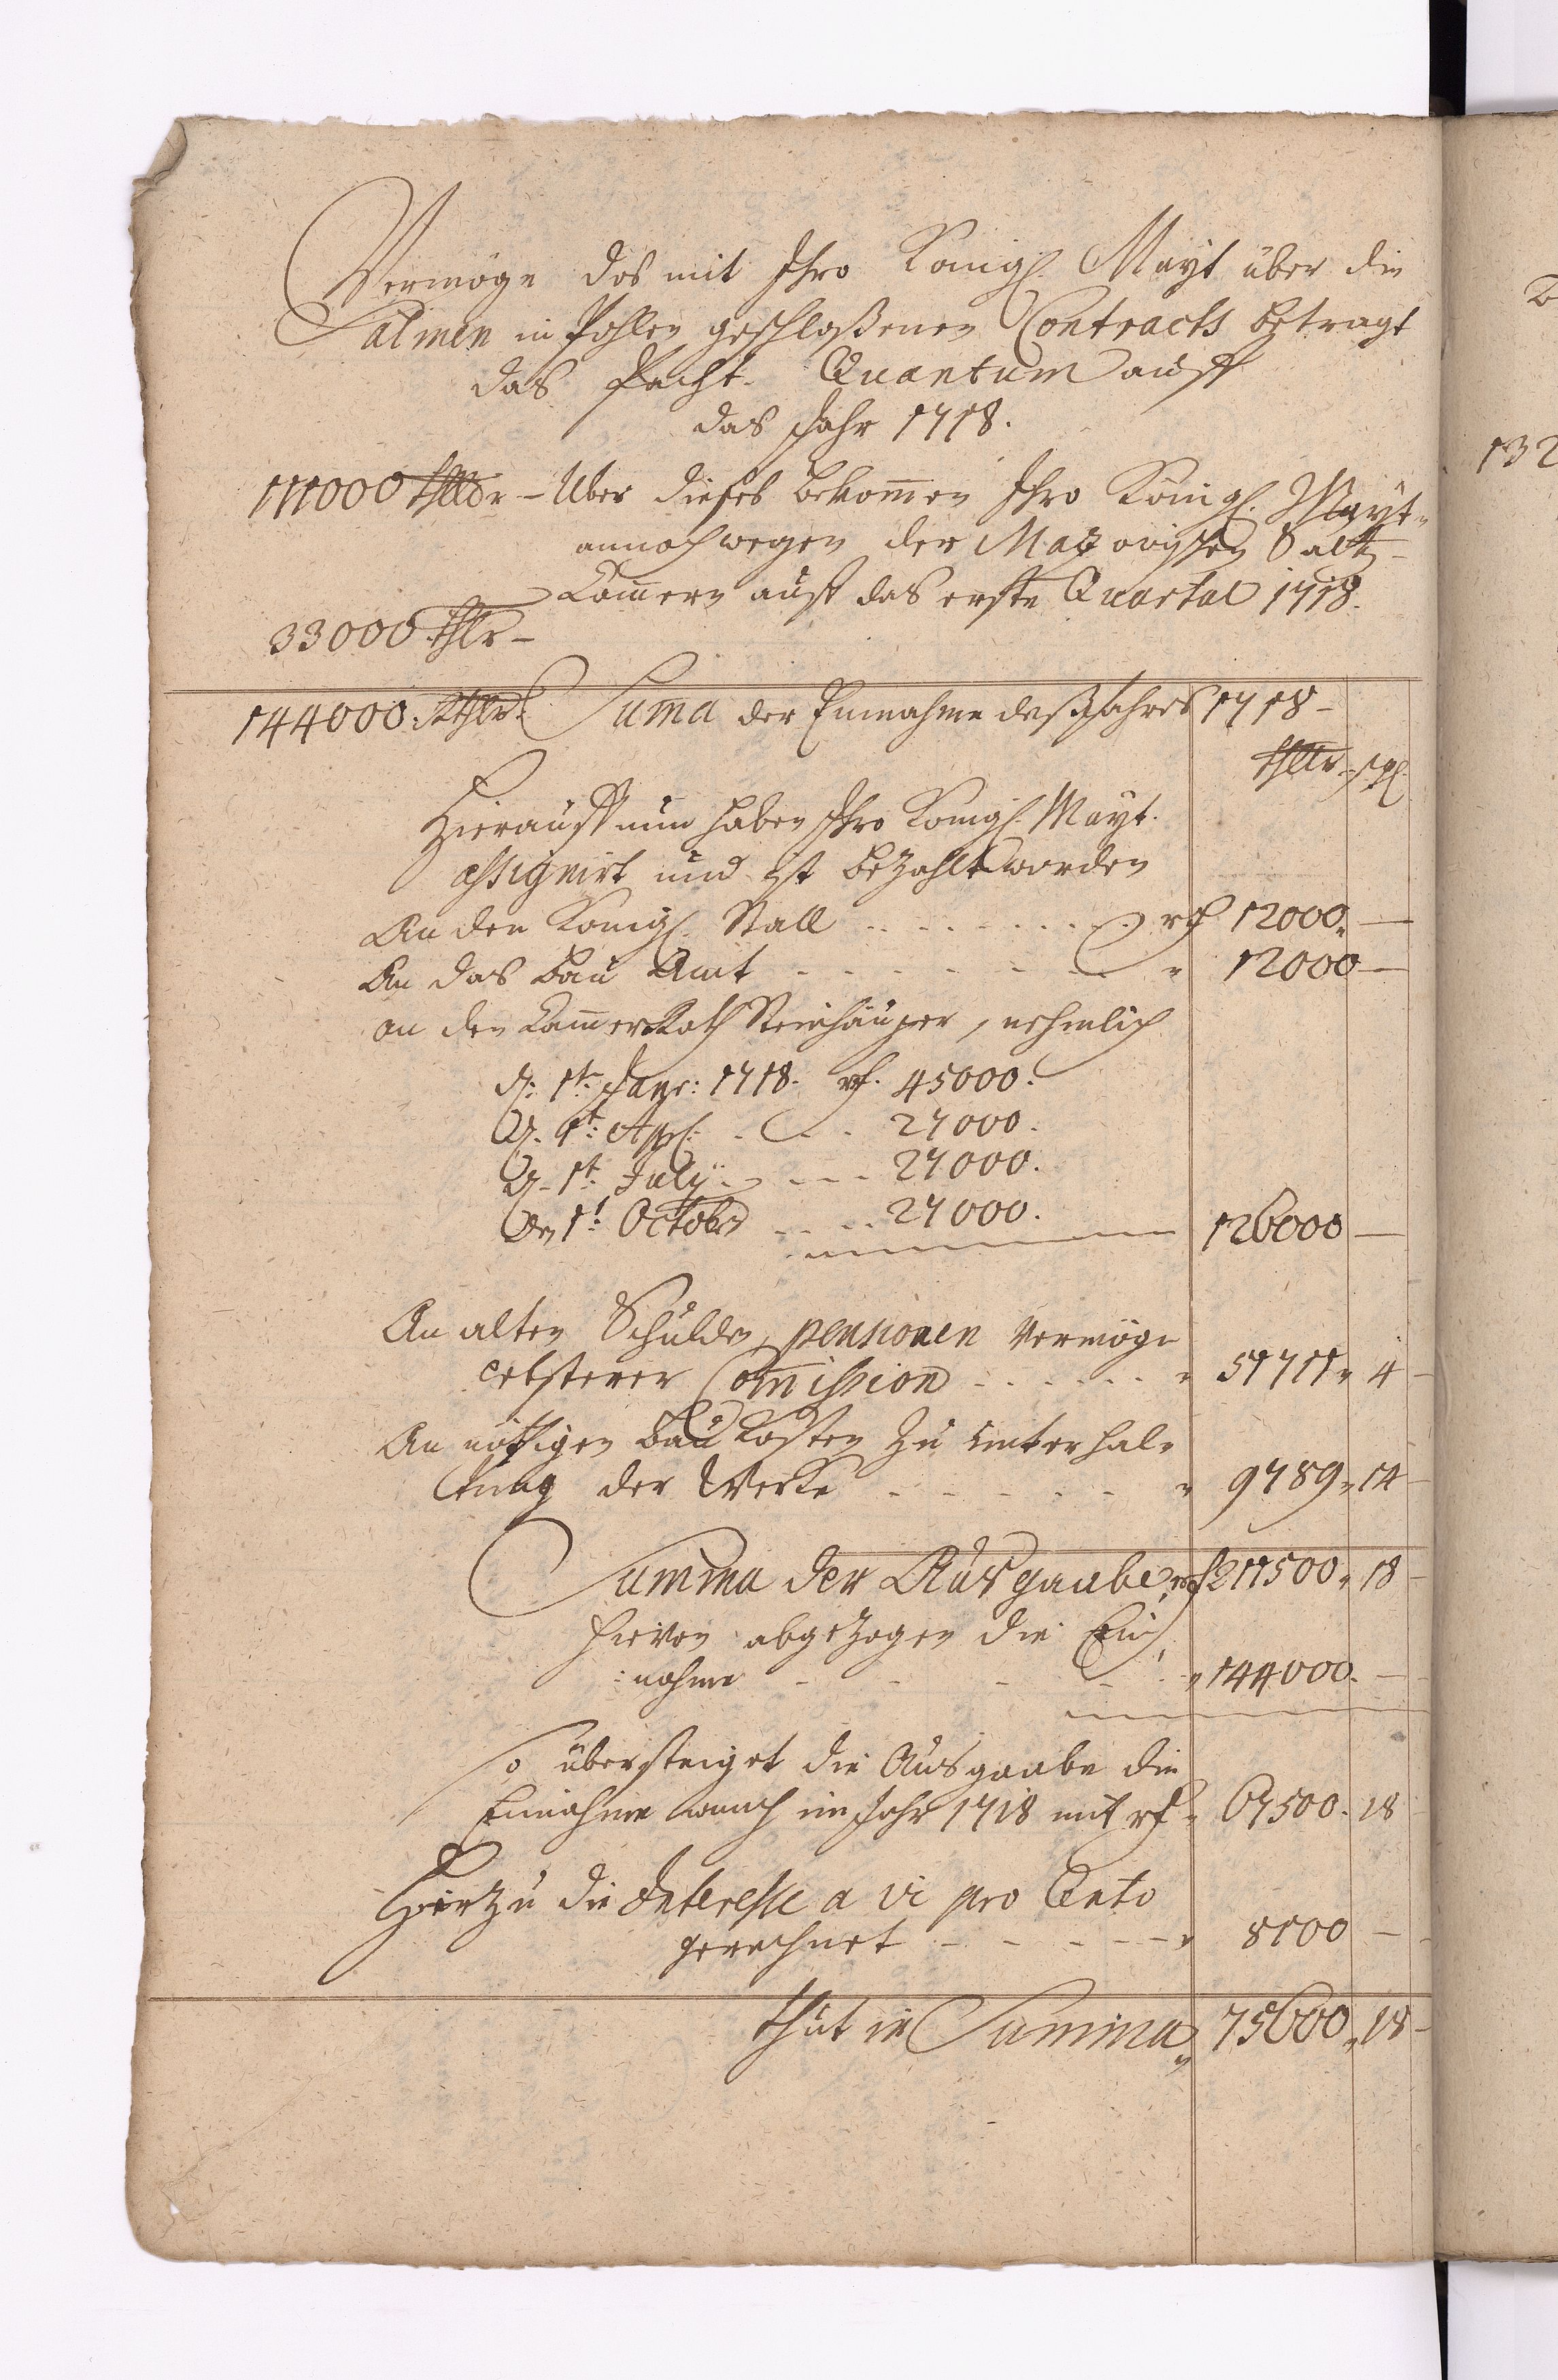 Vermöge des mit Ihro Königl. Mayt über die
Salinen in Pohlen geschloßenen Contracts betragt
das Pacht- Quantum auff
das Jahr 1718.
111000 thlr – Uber dieses bekom̄en Ihro Königl. Mayt.
annoch wegen der Mazovischen Saltz-
Cam̄ern auff das erste Quartal 1718.
33000 thlr –
144000. Rthlr. Sum̄a der Einnahme deß Jahres 1718 –
thlr. gl.
Hierauff nun haben Ihro Königl. Mayt.
assignirt und ist bezahlt worden
An den Königl. Stall - - - - - - rf 12000. —
An das Bau Amt - - - - - - " 12000 —
an den Cam̄erRath Steinhäuser, nehmlich
d. 1t. Janr: 1718. rf. 45000.
d. 1t: Apl. - - - 27000.
d. 1t. July - - - 27000.
den 1t. Octobr - - - 27000. 126000 —
An alten Schulden, pensionen Vermöge
letzterer Com̄ission - - - - - - " 51711 " 4 –
An nöthigen Bau Kosten zu unterhal-
tung der Wercke - - - - - - " 9789 " 14 –
Summa der Ausgaabe, rf 211500 " 18 –
hievon abgezogen die Ein-
:nahme - - - - - " 144000. —
so übersteiget die Ausgaabe die
Einnahme auch im Jahr 1718 mit rf " 67500. 18
Hierzu die Interesse a vi pro Cento
gerechnet - - - - - " 8100 —
thut in Summa " 75600 " 18 –
132